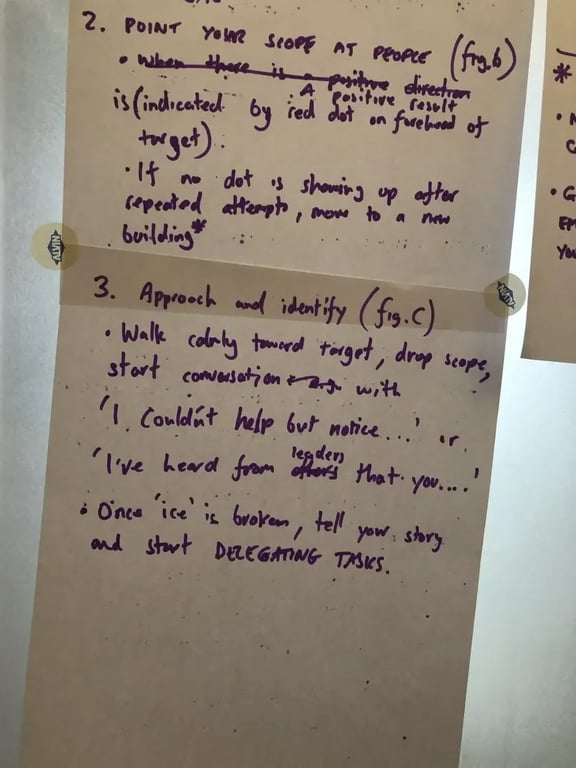 2. POINT YOUR SCOPE AT PEOPLE (fig.b)
• When there is a positive direction
A positive result
is (indicated by red dot on forehead of
target).
• If no dot is showing up after
repeated attempts, move to a new
building*
ALVIN
ALVIN
3. Approach and identify (fig.C)
• Walk calmly toward target, drop scope,
start conversation with
'I couldn't help but notice...' or
leaders
'I've heard from others that you....'
• Once 'ice' is broken, tell your story
and start DELEGATING TASKS.
*
•
•